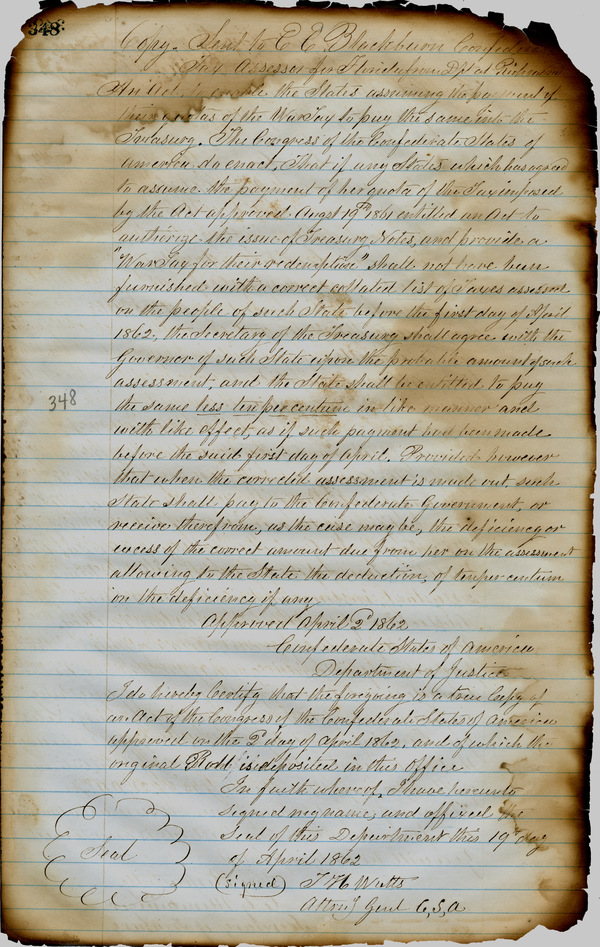 348
Copy. Sent to E E Blackburn Confederate
Tax Assessor for Florida from Dpt at Richmond
An Act to enable the States assuming the payment of
their quotas of the War Tax to pay the same into the
Treasury. The Congress of the Confederate States of
America do enact, That if any State which has agreed
to assume the payment of her quota of the Tax imposed
by the Act approved Augst 19th 1861 entitled an Act to
authorize the issue of Treasury Notes, and provide a
"War Tax for their redemption" shall not have been
furnished with a correct collated list of Taxes assessed
on the people of such State before the first day of April
1862, the Secretary of the Treasury shall agree with the
Governor of such State upon the probable amount of such
assessment, and the State shall be entitled to pay
348
the same less ten per centum in like manner and
with like effect, as if such payment had been made
before the said first day of April. Provided however
that when the corrected assessment is made out such
State shall pay to the Confederate Government, or
receive therefrom, as the case may be, the deficiency or
excess of the correct amount due from her on the assessment
allowing to the State the deduction, of ten per centum
on the deficiency if any
Approved April 2d 1862
Confederate States of America
Department of Justice
I do hereby Certify that the foregoing is a true Copy of
an Act of the Congress of the Confederate States of America
approved on the 2d day of April 1862, and of which the
original Roll is deposited in this Office
In faith whereof, I have hereunto
signed my name, and affixed the
Seal of this Department this 19th day
of April 1862
Seal
(signed) T H Watts
Attny Genl C,S,A